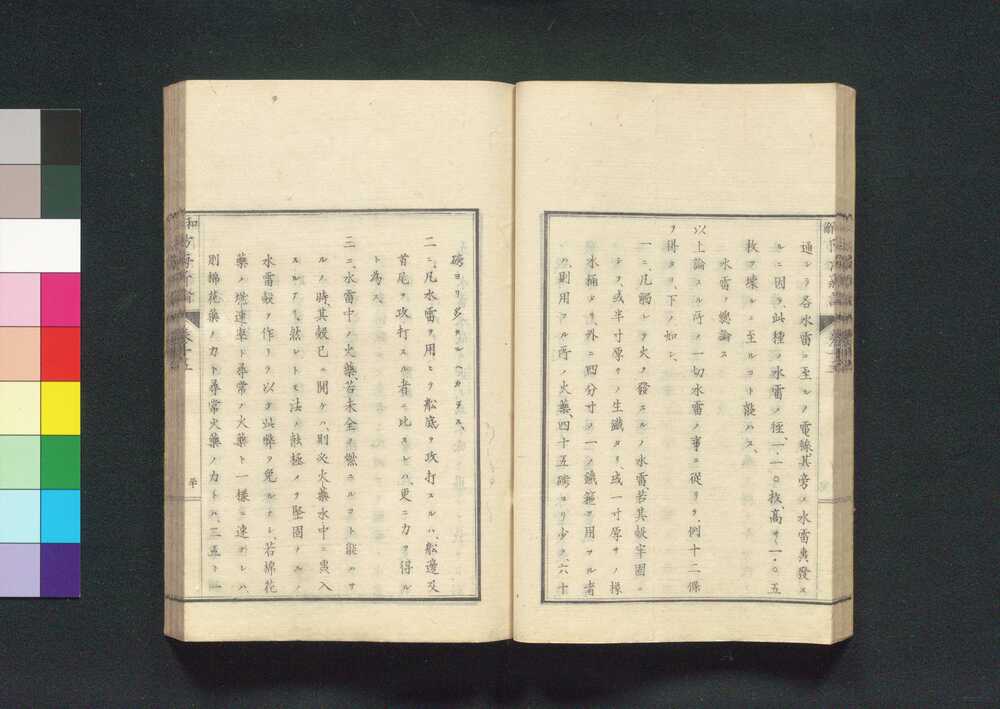 通シテ各水雷ニ至ルノ電線其旁ノ水雷轟發ス
ルニ因テ此種ノ水雷ノ極一、一〇枚、高サ一、〇五
枚ヲ壊ルニ至ルコト能ハス、
水雷ノ總論
以上論スル所ノ一切水雷ノ事ニ從リテ例十二條
ヲ得タリ、下ノ如シ、
一ニ、凡觸レテ火ヲ發スルノ水雷、若其殻牢固ニ
シテ、或半寸厚サノ生鐵タリ、或一寸厚サノ椽
木桶タリ外ニ四分寸ノ一ノ鐵箍ヲ用フル者
ハ、則用フル所ノ火藥、四十五磅ヨリ少ク、六十
磅ヨリ多カルヘカラス、
二ニ、凡水雷ヲ用ヒテ船底ヲ攻打スルハ、船邊及
首尾ヲ攻打スル者ニ比スレハ、更ニ力ヲ得ル
ト為ス、
三ニ、水雷中ノ火藥若未全ク燃ユルコト能ハサ
ルノ時、其殻已ニ開ケハ、則必火藥水中ニ轟入
スルアリ、然レトモ法ノ能極メテ堅固ナルノ
水雷殻ヲ作リテ以テ此弊ヲ免ルナシ、若棉花
藥ノ燃速率ト尋常ノ火藥ト一樣ニ速ナレハ、
則棉花藥ノ力ト尋常火藥ノ力トハ、三五ト一
卷十五